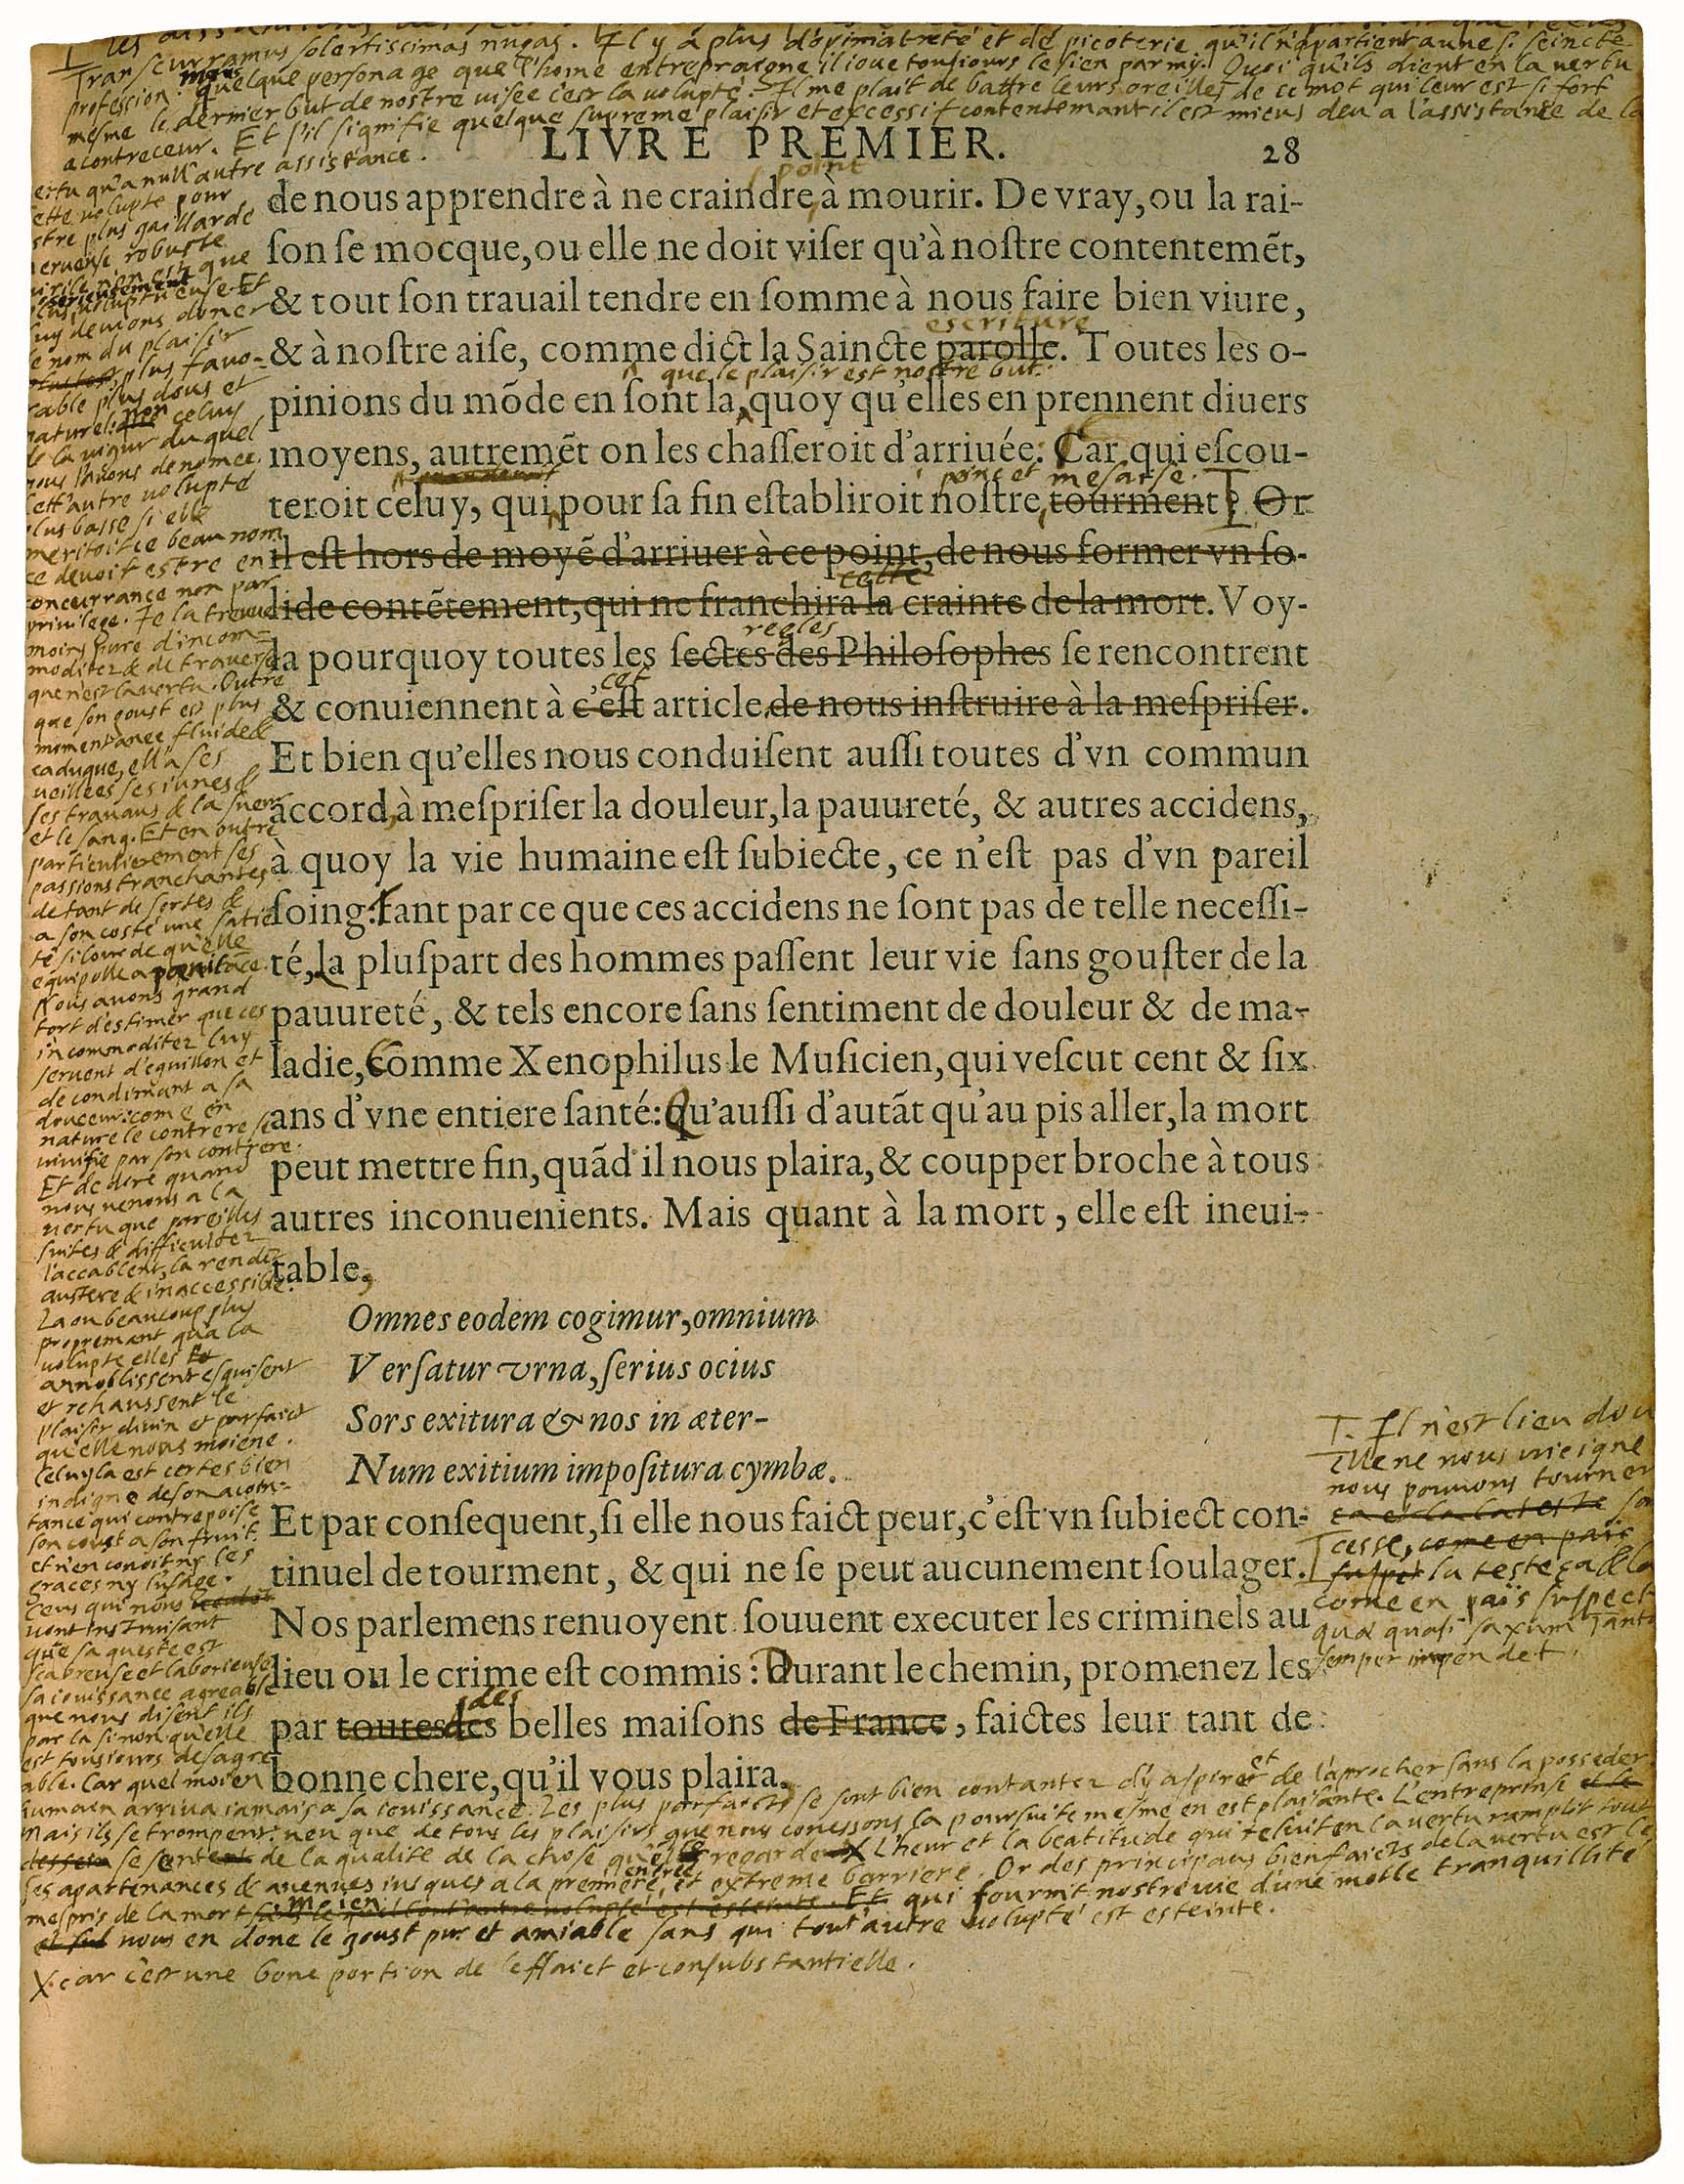 Transcurramus solertissimas nugas. Il y a plus d'opiniatreté et de picoterie qu'il n'apartient a une si seincte
profession. mais quelque personage que l'home entrepraigne il ioue tousiours le sien parmy. Quoi qu'ils dient en la vertu
mesme le dernier but de nostre visee c'est la volupté. Il me plait de battre leurs oreilles de ce mot qui leur est si fort
a contreceur. Et s'il signifie quelque supreme plaisir et excessif contentemant il est mieus deu a l'assistance de la
LIVRE PREMIER. 28
ertu qu'a null'autre assistance.
ette volupte pour
stre plus gaillarde
nerveuse robuste
virile n'en est que
plus serieusement voluptueuse. Et
luy devions doner
le nom du plaisir
plus favo-
rable plus dous et
naturel: non celuy
de la vigur du quel
nous l'avons denomee.
Cett'autre volupté
plus basse si elle
meritoit ce beau nom
ce devoit estre en
concurrance non par
privilege. Je la treuve
moins pure d'incom-
moditez & de traverses
que n'est la vertu. Outre
que son goust est plus
momentanee fluide &
caduque, ell'a ses
veillees ses iunes &
ses travaus & la sueur
et le sang. Et en outre
particulierement ses
passions tranchantes
de tant de sortes &
a son costé une satie
té si lourde qu'elle
equipolle a pœnitāce.
Nous avons grand
tort d'estimer que ces
incommoditez luy
servent d'eguillon et
de condimant a sa
douceur: come en
nature le contrere se
vivifie par son contrere.
Et de dire quand
nous venons a la
vertu que pareilles
suites & difficultez
l'accablent, la rendēt
austere & inaccessible.
La ou beaucoup plus
propremant qu'a la
volupte elles
anoblissent esguisent
et rehaussent le
plaisir divin et parfaict
qu'elle nous moiene.
Celuyla est certes bien
indigne de son acoin-
tance qui contrepoise
son coust a son fruit:
et n'en conoit ny les
graces ny l'usage.
Ceus qui nous
vont instruisant
que sa queste est
scabreuse et laborieuse
sa iouissance agreable
que nous disent ils
par la sinon qu'elle
est tousiours desagre
able. Car quel moien
point
de nous apprendre à ne craindre à mourir. De vray, ou la rai-
ſon ſe mocque, ou elle ne doit viſer qu'à noſtre contentemẽt,
& tout ſon trauail tendre en ſomme à nous faire bien viure,
escriture
& à noſtre aiſe, comme dict la Saincte parolle. Toutes les o-
que le plaisir est nostre but.
pinions du mõde en ſont la, quoy qu'elles en prennent diuers
moyens, autremẽt on les chaſſeroit d'arriuée: Car qui eſcou-
peine et mesaise.
teroit celuy, qui pour ſa fin eſtabliroit noſtre tourment? Or
il eſt hors de moyẽ d'arriuer à ce point, de nous former vn ſo-
cette
lide contẽtement, qui ne franchira la crainte de la mort. Voy-
regles
la pourquoy toutes les ſectes des Philoſophes ſe rencontrent
cet
& conuiennent à c'eſt article, de nous inſtruire à la meſpriſer.
Et bien qu'elles nous conduiſent auſſi toutes d'vn commun
accord, à meſpriſer la douleur, la pauureté, & autres accidens,
à quoy la vie humaine eſt ſubiecte, ce n'eſt pas d'vn pareil
ſoing: tant par ce que ces accidens ne ſont pas de telle neceſſi-
té, la pluſpart des hommes paſſent leur vie ſans gouſter de la
pauureté, & tels encore ſans ſentiment de douleur & de ma-
ladie, comme Xenophilus le Muſicien, qui veſcut cent & ſix
ans d'vne entiere ſanté: Qu'auſſi d'autãt qu'au pis aller, la mort
peut mettre fin, quãd il nous plaira, & coupper broche à tous
autres inconuenients. Mais quant à la mort, elle eſt ineui-
table,
Omnes eodem cogimur, omnium
Verſatur vrna, ſerius ocius
Sors exitura & nos in æter-
Num exitium impoſitura cymbæ.
Et par conſequent, ſi elle nous faict peur, c'eſt vn ſubiect con-
tinuel de tourment, & qui ne ſe peut aucunement ſoulager.
Nos parlemens renuoyent ſouuent executer les criminels au
lieu ou le crime eſt commis: Durant le chemin, promenez les
des
par toutes les belles maiſons de France, faictes leur tant de
bonne chere, qu'il vous plaira.
Il n'est lieu d'ou
elle ne nous vieigne
nous pouvons tourner
ça et la la teste sa
cesse, come en païs
suspet la teste ça & la
come en païs suspect
quæ quasi saxum Tanta
semper impendet.
humain arriva iamais a sa iouissance. Les plus parfaicts se sont bien contantez d'y aspirer et de l'aprocher sans la posseder.
Mais ils se trompent: veu que de tous les plaisirs que nous conessons la poursuite mesme en est plaisante. L'entreprinse
se sent de la qualite de la chose qu'elle regarde X L'heur et la beatitude qui reluit en la vertu ramplit toutes
ses apartenances & avenues iusques a la premiere entree et extreme barriere. Or des principaus bienfaicts de la vertu est le
mespris de la mort moien qui fournit nostre vie d'une molle tranquillité
nous en done le goust pur et amiable sans qui tout'autre volupté est esteinte.
X car c'est une bone portion de l'effaict et consubstantielle.